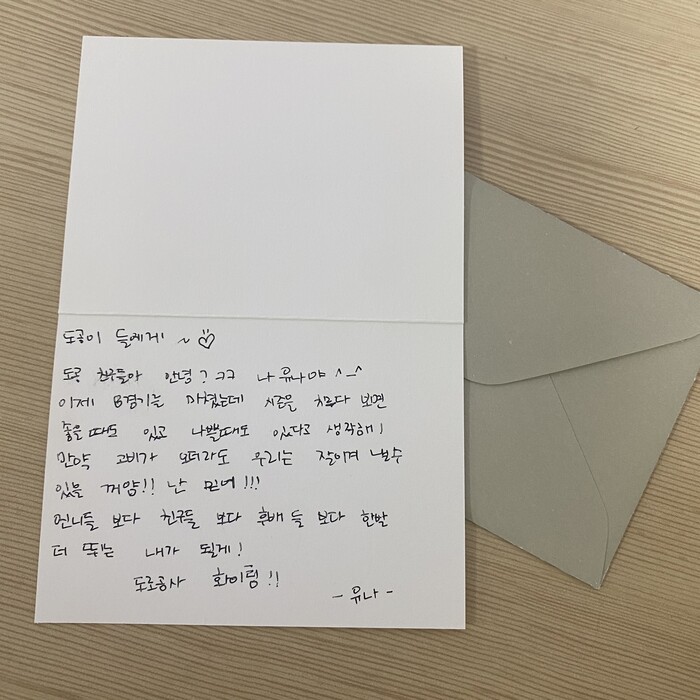 도공이 들에게 ~ ♡
도공 친구들아 안녕? ㅋㅋ 나 유나야 ^_^
이제 8경기는 마쳤는데 시즌을 치루다 보면
좋을때도 있고 나쁠때도 있다고 생각해!
만약 고비가 오더라도 우리는 잘이겨 낼수
있을 꺼얌!! 난 믿어!!!
언니들 보다 친구들 보다 후배들 보다 한발
더 뛰는 내가 될게!
도로공사 화이팅!!
- 유나 -